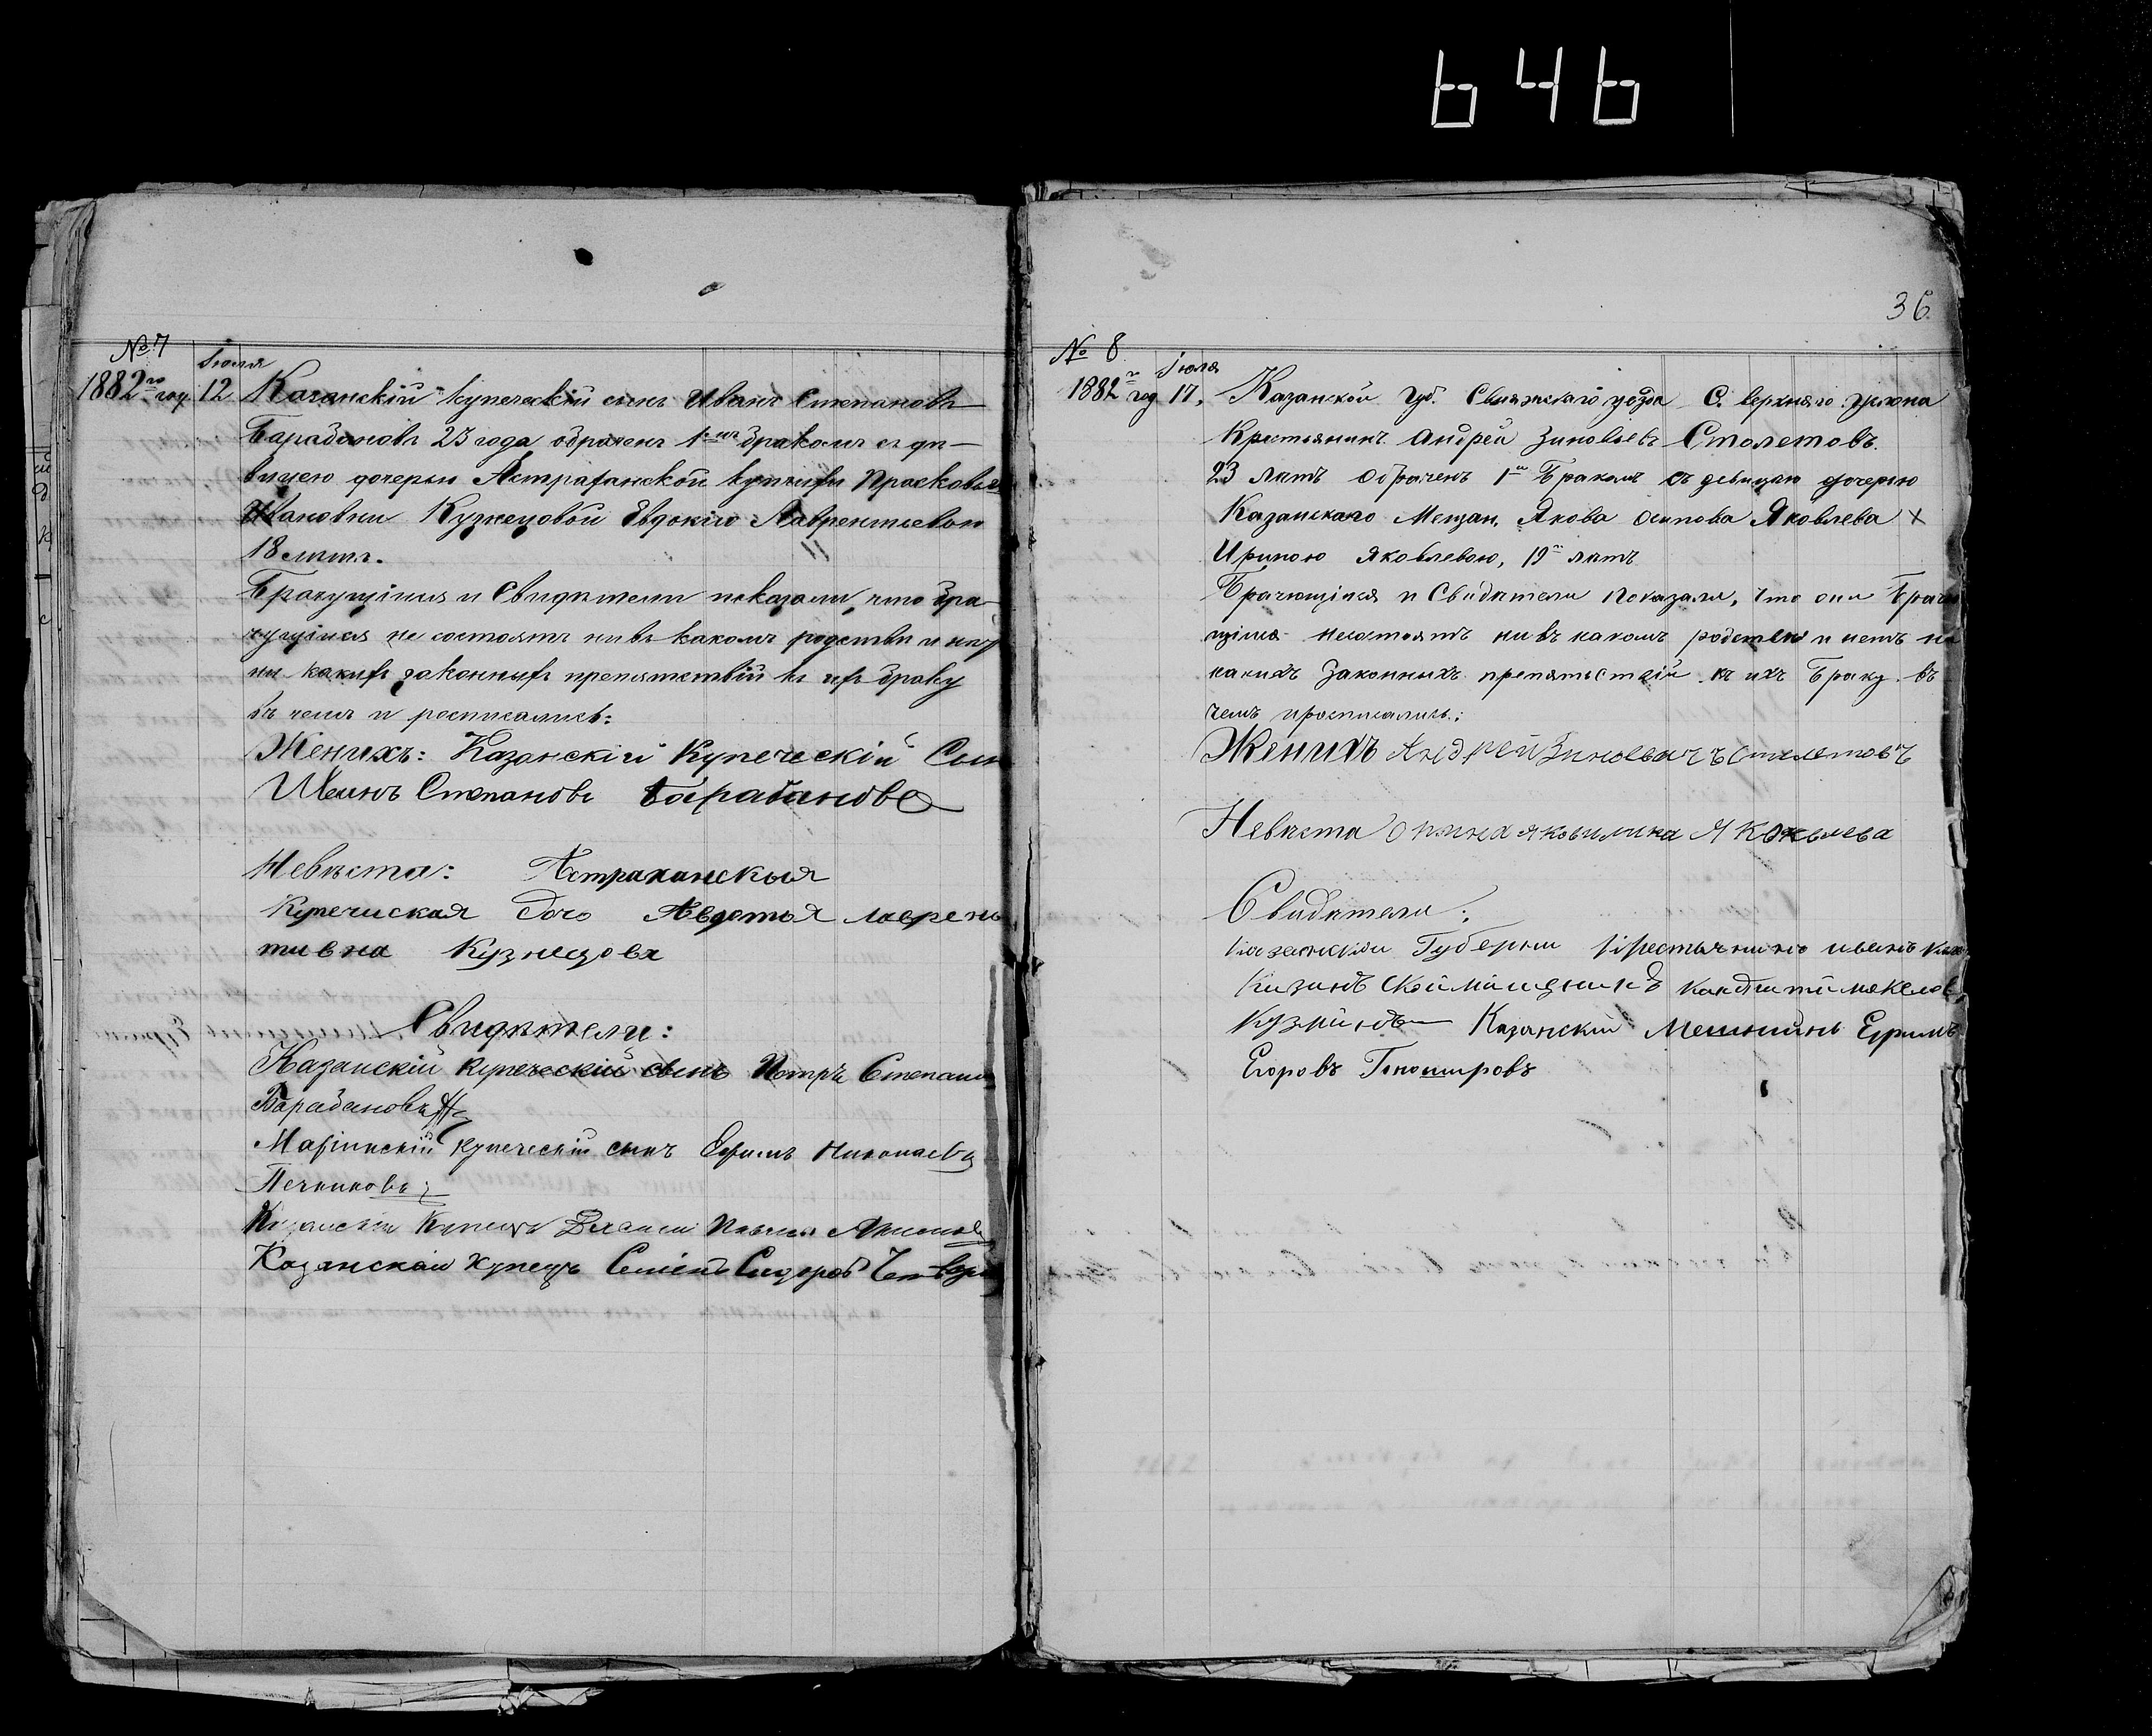 646
№ 7
1882го год. Июля 12 Казанскій купеческій сынъ Иванъ Степановъ
Барабановъ 23 года обраченъ 1мъ бракомъ съ дѣ-
вицею дочерью Астраханской купчихи Прасковьи
Ивановны Кузнецовой Евдокіею Лаврентьевою
18 лѣтъ.
Брачущіися и Свидѣтели показали, что бра-
чущіися не состоятъ ни въ какомъ родствѣ и нѣт
ни какихъ законныхъ препятствій къ ихъ браку
въ чемъ и росписались:
Женихъ: Казанскій Купеческій Сын
Иванъ Степановъ Барабановъ
Невѣста: Астраханскыя
Купечиская Дочь Авдотья лаврен
тивна Кузнецова
Свидѣтели:
Казанскій Купеческій сынъ Петръ Степано
Барабановъ
Маріинскій купеческій сынъ Ефимъ Николаевъ
Печниковъ
Казанскій Купецъ
Казанскай купецъ Семенъ Сидоров
36.
№ 8
1882го год Іюля 17, Казанской Губ. Свіяжскаго уѣзда С. верхняго Услона
Крестьянинъ Андрей Зиновьевъ Столетовъ.
23 лѣтъ Обраченъ 1м Бракомъ съ девицаю дочерью
Казанскаго Мещан. Якова Осипова Яковлева ×
Ириною Яковлевою, 19 лѣтъ
Брачющіися и Свидѣтели Показали, что они Брачю
щіися несостоятъ ни въ какомъ родстве и нетъ ни
какихъ Законныхъ препятьствій къ ихъ Браку. въ
чемъ иросписались:
Женихъ Андрей Зиновьвичъ Столетовъ
Невѣста Орина яковлина Яковлева
Свидѣтели:
Казанской Губерни Крестьянинъ иванъ
Казанъ Ской
Кузминъ Казанскій Мешнинъ Ефимъ
Егоровъ